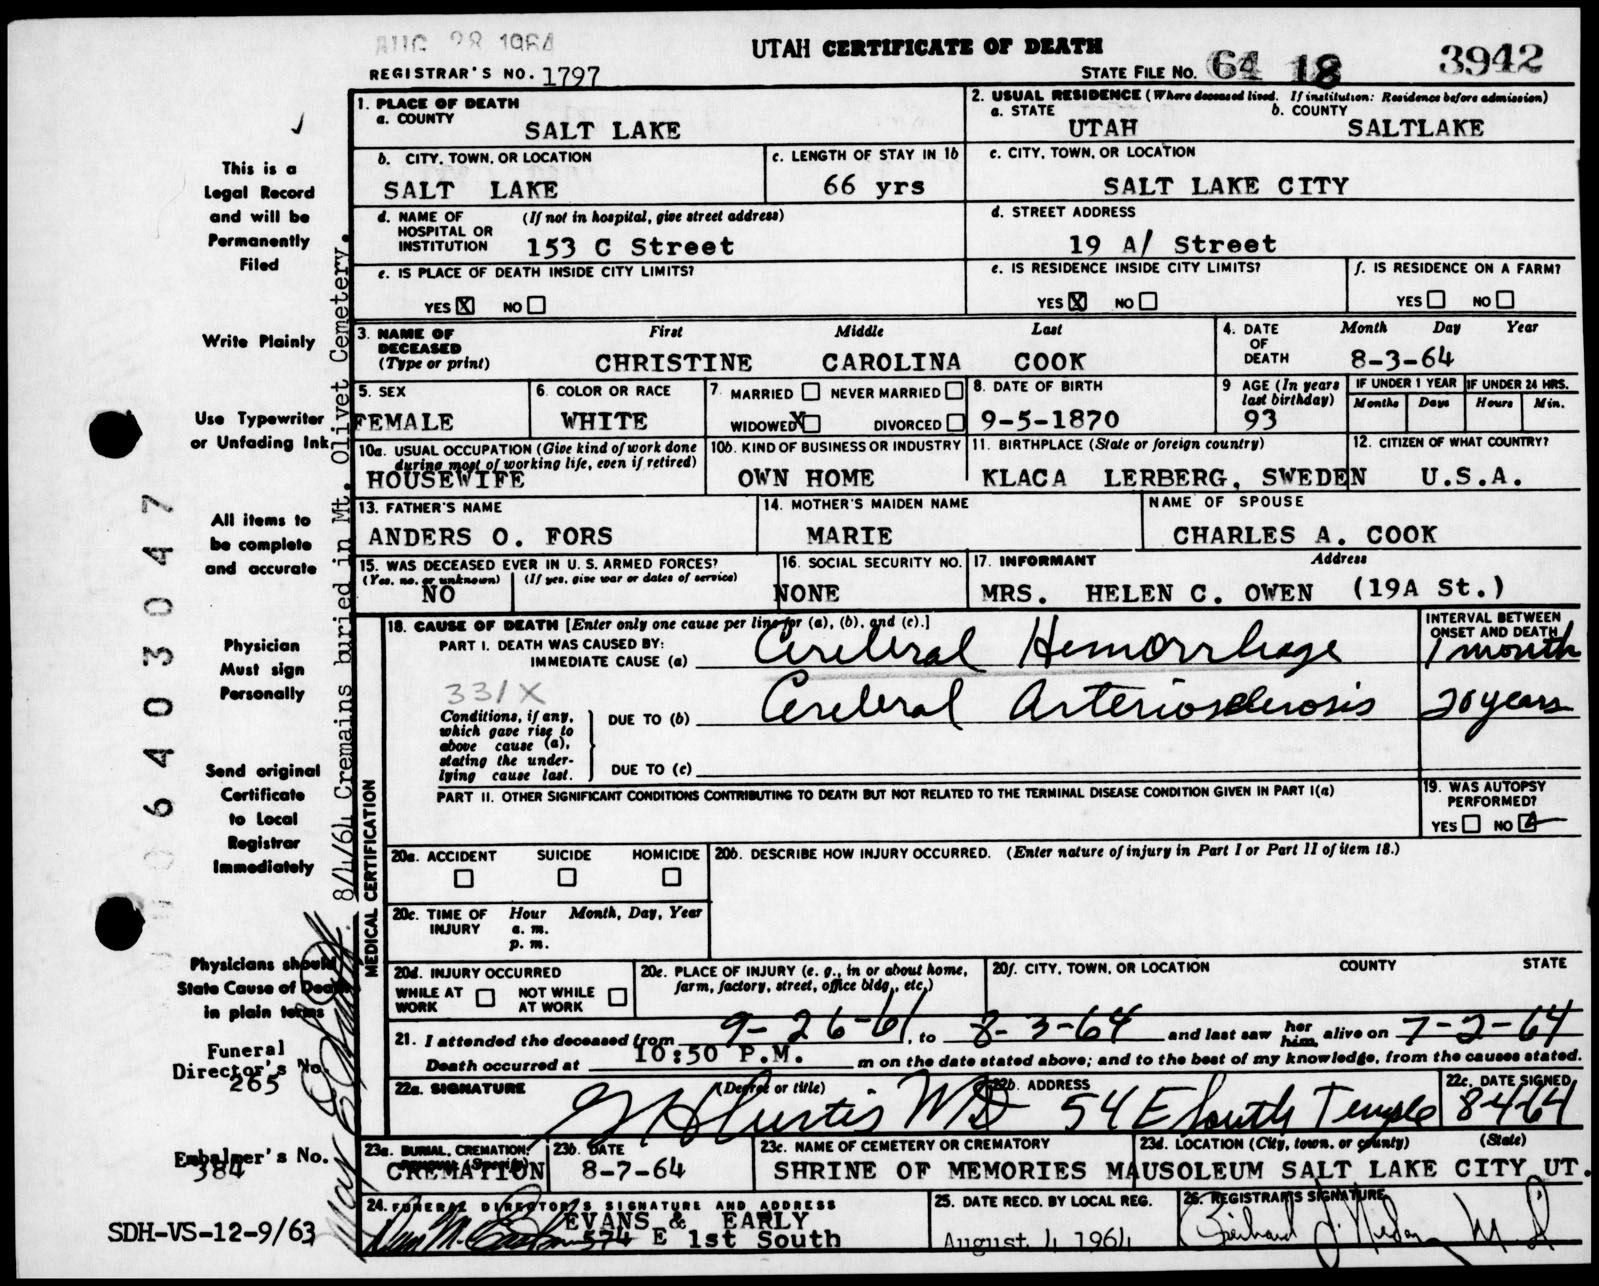 AUG 28 1964
UTAH CERTIFICATE OF DEATH
REGISTRAR'S NO. 1797
STATE FILE NO. 64 18 3942
1. PLACE OF DEATH
a. COUNTY
SALT LAKE
2. USUAL RESIDENCE (Where deceased lived. If institution: Residence before admission)
a. STATE UTAH
b. COUNTY SALTLAKE
b. CITY, TOWN, OR LOCATION
SALT LAKE
c. LENGTH OF STAY IN 1b
66 yrs
c. CITY, TOWN, OR LOCATION
SALT LAKE CITY
d. NAME OF HOSPITAL OR INSTITUTION
(If not in hospital, give street address)
153 C Street
d. STREET ADDRESS
19 A/ Street
e. IS PLACE OF DEATH INSIDE CITY LIMITS?
YES X NO
e. IS RESIDENCE INSIDE CITY LIMITS?
YES X NO
f. IS RESIDENCE ON A FARM?
YES NO
3. NAME OF DECEASED
(Type or print)
First Middle Last
CHRISTINE CAROLINA COOK
4. DATE OF DEATH
Month Day Year
8-3-64
5. SEX
FEMALE
6. COLOR OR RACE
WHITE
7. MARRIED NEVER MARRIED
WIDOWED X DIVORCED
8. DATE OF BIRTH
9-5-1870
9 AGE (In years last birthday)
93
IF UNDER 1 YEAR
Months Days
IF UNDER 24 HRS.
Hours Min.
10a. USUAL OCCUPATION (Give kind of work done during most of working life, even if retired)
HOUSEWIFE
10b. KIND OF BUSINESS OR INDUSTRY
OWN HOME
11. BIRTHPLACE (State or foreign country)
KLACA LERBERG, SWEDEN
12. CITIZEN OF WHAT COUNTRY?
U.S.A.
13. FATHER'S NAME
ANDERS O. FORS
14. MOTHER'S MAIDEN NAME
MARIE
NAME OF SPOUSE
CHARLES A. COOK
15. WAS DECEASED EVER IN U. S. ARMED FORCES?
(Yes, no, or unknown) (If yes, give war or dates of service)
NO
16. SOCIAL SECURITY NO.
NONE
17. INFORMANT Address
MRS. HELEN C. OWEN (19A St.)
MEDICAL CERTIFICATION
18. CAUSE OF DEATH [Enter only one cause per line for (a), (b), and (c).]
PART I. DEATH WAS CAUSED BY:
IMMEDIATE CAUSE (a) Cerebral Hemorrhage
INTERVAL BETWEEN ONSET AND DEATH
1 month
331X
Conditions, if any, which gave rise to above cause (a), stating the underlying cause last.
DUE TO (b) Cerebral Arteriosclerosis
20 years
DUE TO (c)
PART II. OTHER SIGNIFICANT CONDITIONS CONTRIBUTING TO DEATH BUT NOT RELATED TO THE TERMINAL DISEASE CONDITION GIVEN IN PART I(a)
19. WAS AUTOPSY PERFORMED?
YES NO
20a. ACCIDENT SUICIDE HOMICIDE
20b. DESCRIBE HOW INJURY OCCURRED. (Enter nature of injury in Part I or Part II of item 18.)
20c. TIME OF INJURY
Hour Month, Day, Year
a. m.
p. m.
20d. INJURY OCCURRED
WHILE AT WORK NOT WHILE AT WORK
20e. PLACE OF INJURY (e. g., in or about home, farm, factory, street, office bldg., etc.)
20f. CITY, TOWN, OR LOCATION COUNTY STATE
21. I attended the deceased from 9-26-61, to 8-3-64 and last saw her him, alive on 7-2-64
Death occurred at 10:50 P.M. m on the date stated above; and to the best of my knowledge, from the causes stated.
22a. SIGNATURE (Degree or title)
Curtis MD
22b. ADDRESS
54 E South Temple
22c. DATE SIGNED
8-4-64
23a. BURIAL, CREMATION, REMOVAL (Specify)
CREMATION
23b. DATE
8-7-64
23c. NAME OF CEMETERY OR CREMATORY
SHRINE OF MEMORIES MAUSOLEUM
23d. LOCATION (City, town, or county) (State)
SALT LAKE CITY UT.
24. FUNERAL DIRECTOR'S SIGNATURE AND ADDRESS
EVANS & EARLY
574 E 1st South
25. DATE RECD. BY LOCAL REG.
August 4 1964
26. REGISTRAR'S SIGNATURE
This is a
Legal Record
and will be
Permanently
Filed
Write Plainly
Use Typewriter
or Unfading Ink
All items to
be complete
and accurate
Physician
Must sign
Personally
Send original
Certificate
to Local
Registrar
Immediately
Physicians should
State Cause of Death
in plain terms
Funeral
Director's No.
265
Embalmer's No.
384
SDH-VS-12-9/63
6403047
8/4/64 Cremains buried in Mt. Olivet Cemetery.